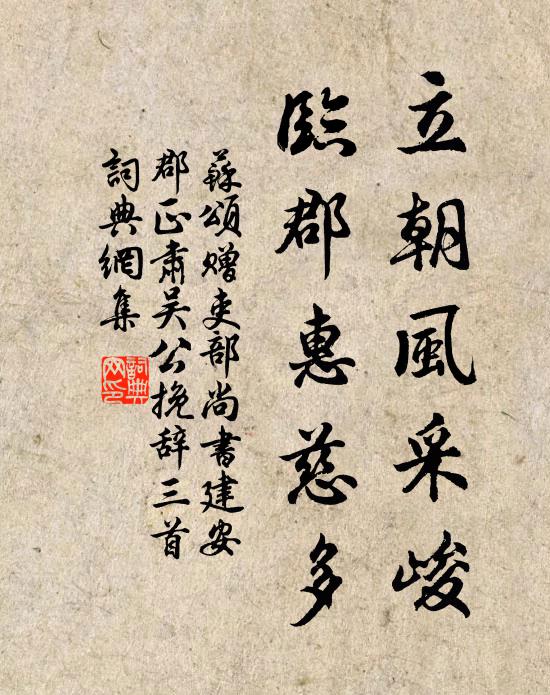 立朝風采峻
臨郡惠慈多
蘇頌贈吏部尚書建安
郡正肅吴公挽辞三首
詞典網集
詞典
网印